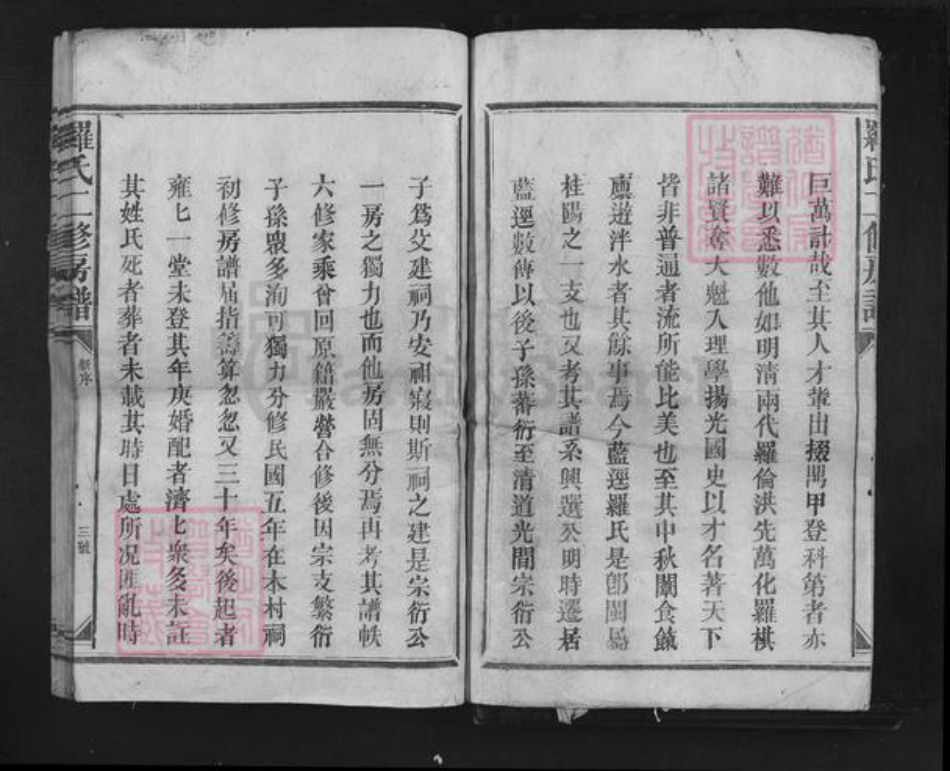 羅氏二修房譜
巨萬計哉至其人才輩出掇鼎甲登科第者亦
難以悉數他如明清兩代羅倫洪先萬化羅棋
諸賢奪大魁入理學揚光國史以才名著天下
皆非普通者流所能比美也至其中秋闈食餼
廪遊泮水者其餘事焉今藍逕羅氏是卽閩屬
桂陽之一支也又考其譜系興選公明時遷居
藍逕數傳以後子孫蕃衍至清道光間宗衍公
子爲父建祠乃安祖寢則斯祠之建是宗衍公
一房之獨力也而他房固無分焉再考其譜帙
六修家乘曾回原籍嚴營合修後因宗支繁衍
子孫衆多洵可獨力分修民國五年在本村祠
初修房譜屈指籌算忽忽又三十年矣後起者
雍七一堂未登其年庚婚配者濟七衆多未註
其姓氏死者葬者未載其時日處所况匪亂時
羅氏二修房譜
新序
三號
FamilySearch